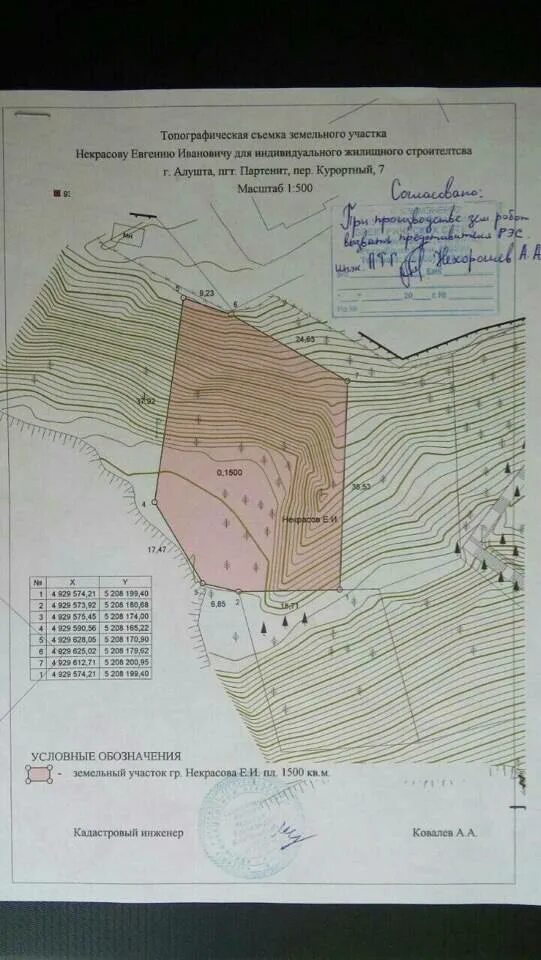 Топографическая съемка земельного участка
Некрасову Евгению Ивановичу для индивидуального жилищного строителтсва
г. Алушта, пгт. Партенит, пер. Курортный, 7
Масштаб 1:500
Согласовано:
При производстве зем работ
вызвать представителя РЭС.
инж. ПТГ Нехорошев А.А
20
5
9,23
6
24,65
7
37,92
38,53
0,1500
Некрасов Е.И.
4
17,47
3
6,85
2
18,71
1
№ X Y
1 4 929 574,21 5 208 199,40
2 4 929 573,92 5 208 180,68
3 4 929 575,45 5 208 174,00
4 4 929 590,56 5 208 165,22
5 4 929 628,05 5 208 170,90
6 4 929 625,02 5 208 179,62
7 4 929 612,71 5 208 200,95
1 4 929 574,21 5 208 199,40
УСЛОВНЫЕ ОБОЗНАЧЕНИЯ
- земельный участок гр. Некрасова Е.И. пл. 1500 кв.м.
Кадастровый инженер Ковалев А.А.